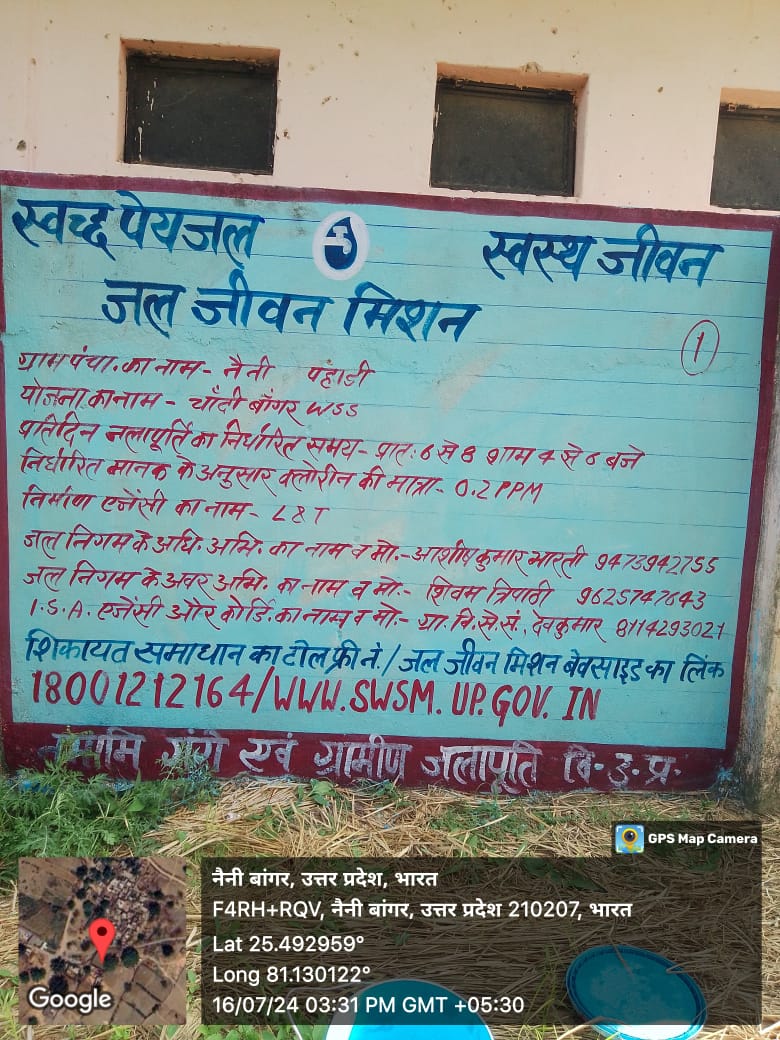 स्वच्छ पेयजल स्वस्थ जीवन
जल जीवन मिशन
1
ग्राम पंचा. का नाम - नैनी पहाडी
योजना का नाम - चाँदी बाँगर WSS
प्रतिदिन जलापूर्ति का निर्धारित समय - प्रात: 6 से 8 शाम 4 से 6 बजे
निर्धारित मानक के अनुसार क्लोरीन की मात्रा - 0.2 PPM
निर्माण एजेंसी का नाम - L&T
जल निगम के अधि. अभि. का नाम व मो. - आशीष कुमार भारती 9473942755
जल निगम के अवर अभि. का नाम व मो. - शिवम त्रिपाठी 9625747643
I.S.A. एजेंसी और कोर्डि. का नाम व मो. - ग्रा. वि. से. सं., देवकुमार 8114293021
शिकायत समाधान का टोल फ्री नं. / जल जीवन मिशन बेवसाइड का लिंक
18001212164/WWW.SWSM.UP.GOV.IN
नमामि गंगे एवं ग्रामीण जलापूर्ति वि. उ. प्र.
GPS Map Camera
नैनी बांगर, उत्तर प्रदेश, भारत
F4RH+RQV, नैनी बांगर, उत्तर प्रदेश 210207, भारत
Lat 25.492959°
Long 81.130122°
16/07/24 03:31 PM GMT +05:30
Google